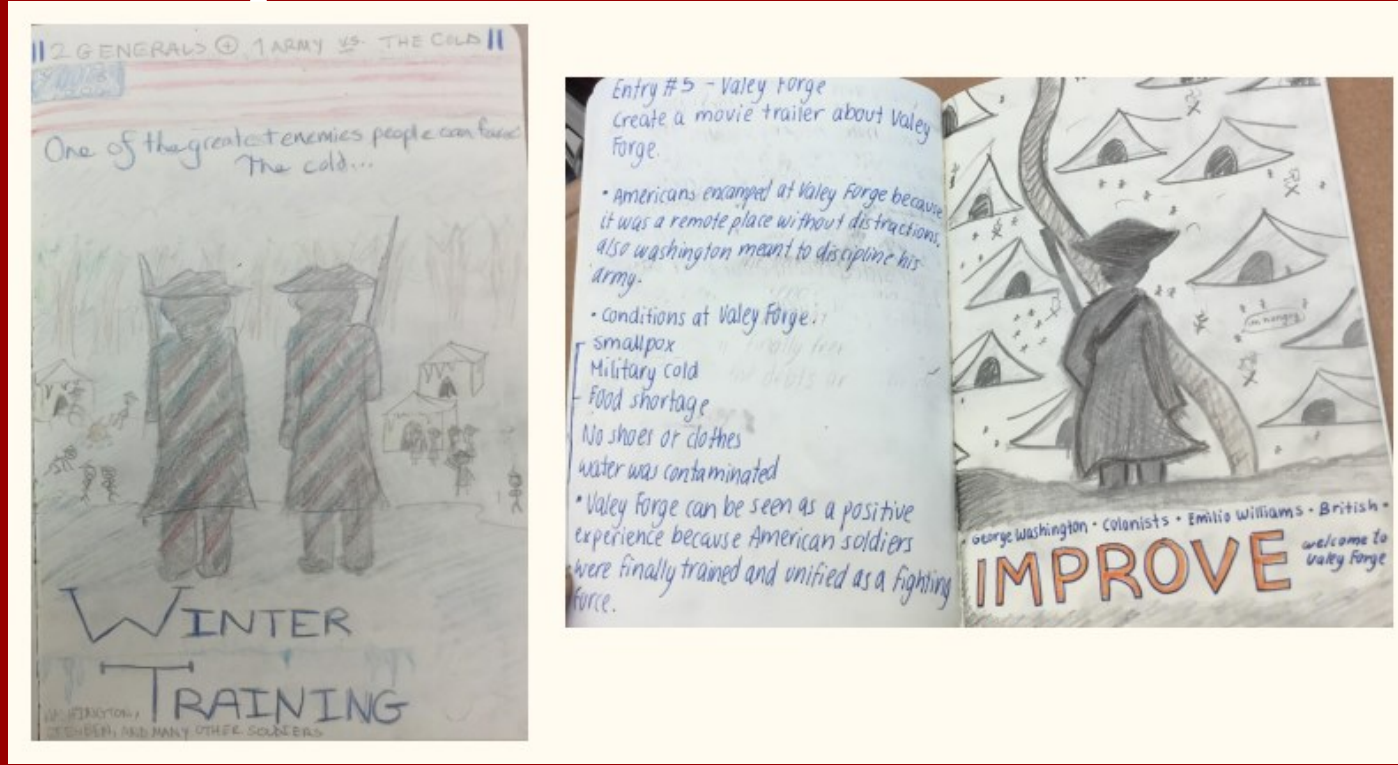 2 GENERALS + 1 ARMY vs. THE COLD
One of the greatest enemies people can face
The cold...
WINTER
TRAINING
WASHINGTON,
STEUBEN, AND MANY OTHER SOLDIERS
Entry #5 - Valey Forge
Create a movie trailer about Valey
Forge.
• Americans encamped at Valey Forge because
it was a remote place without distractions,
also washington meant to discipline his
army.
• Conditions at Valey Forge:
smallpox
Military cold
Food shortage
No shoes or clothes
water was contaminated
• Valey Forge can be seen as a positive
experience because American soldiers
were finally trained and unified as a fighting
force.
im hungry
George Washington • Colonists • Emilio Williams • British •
IMPROVE
welcome to
Valey Forge